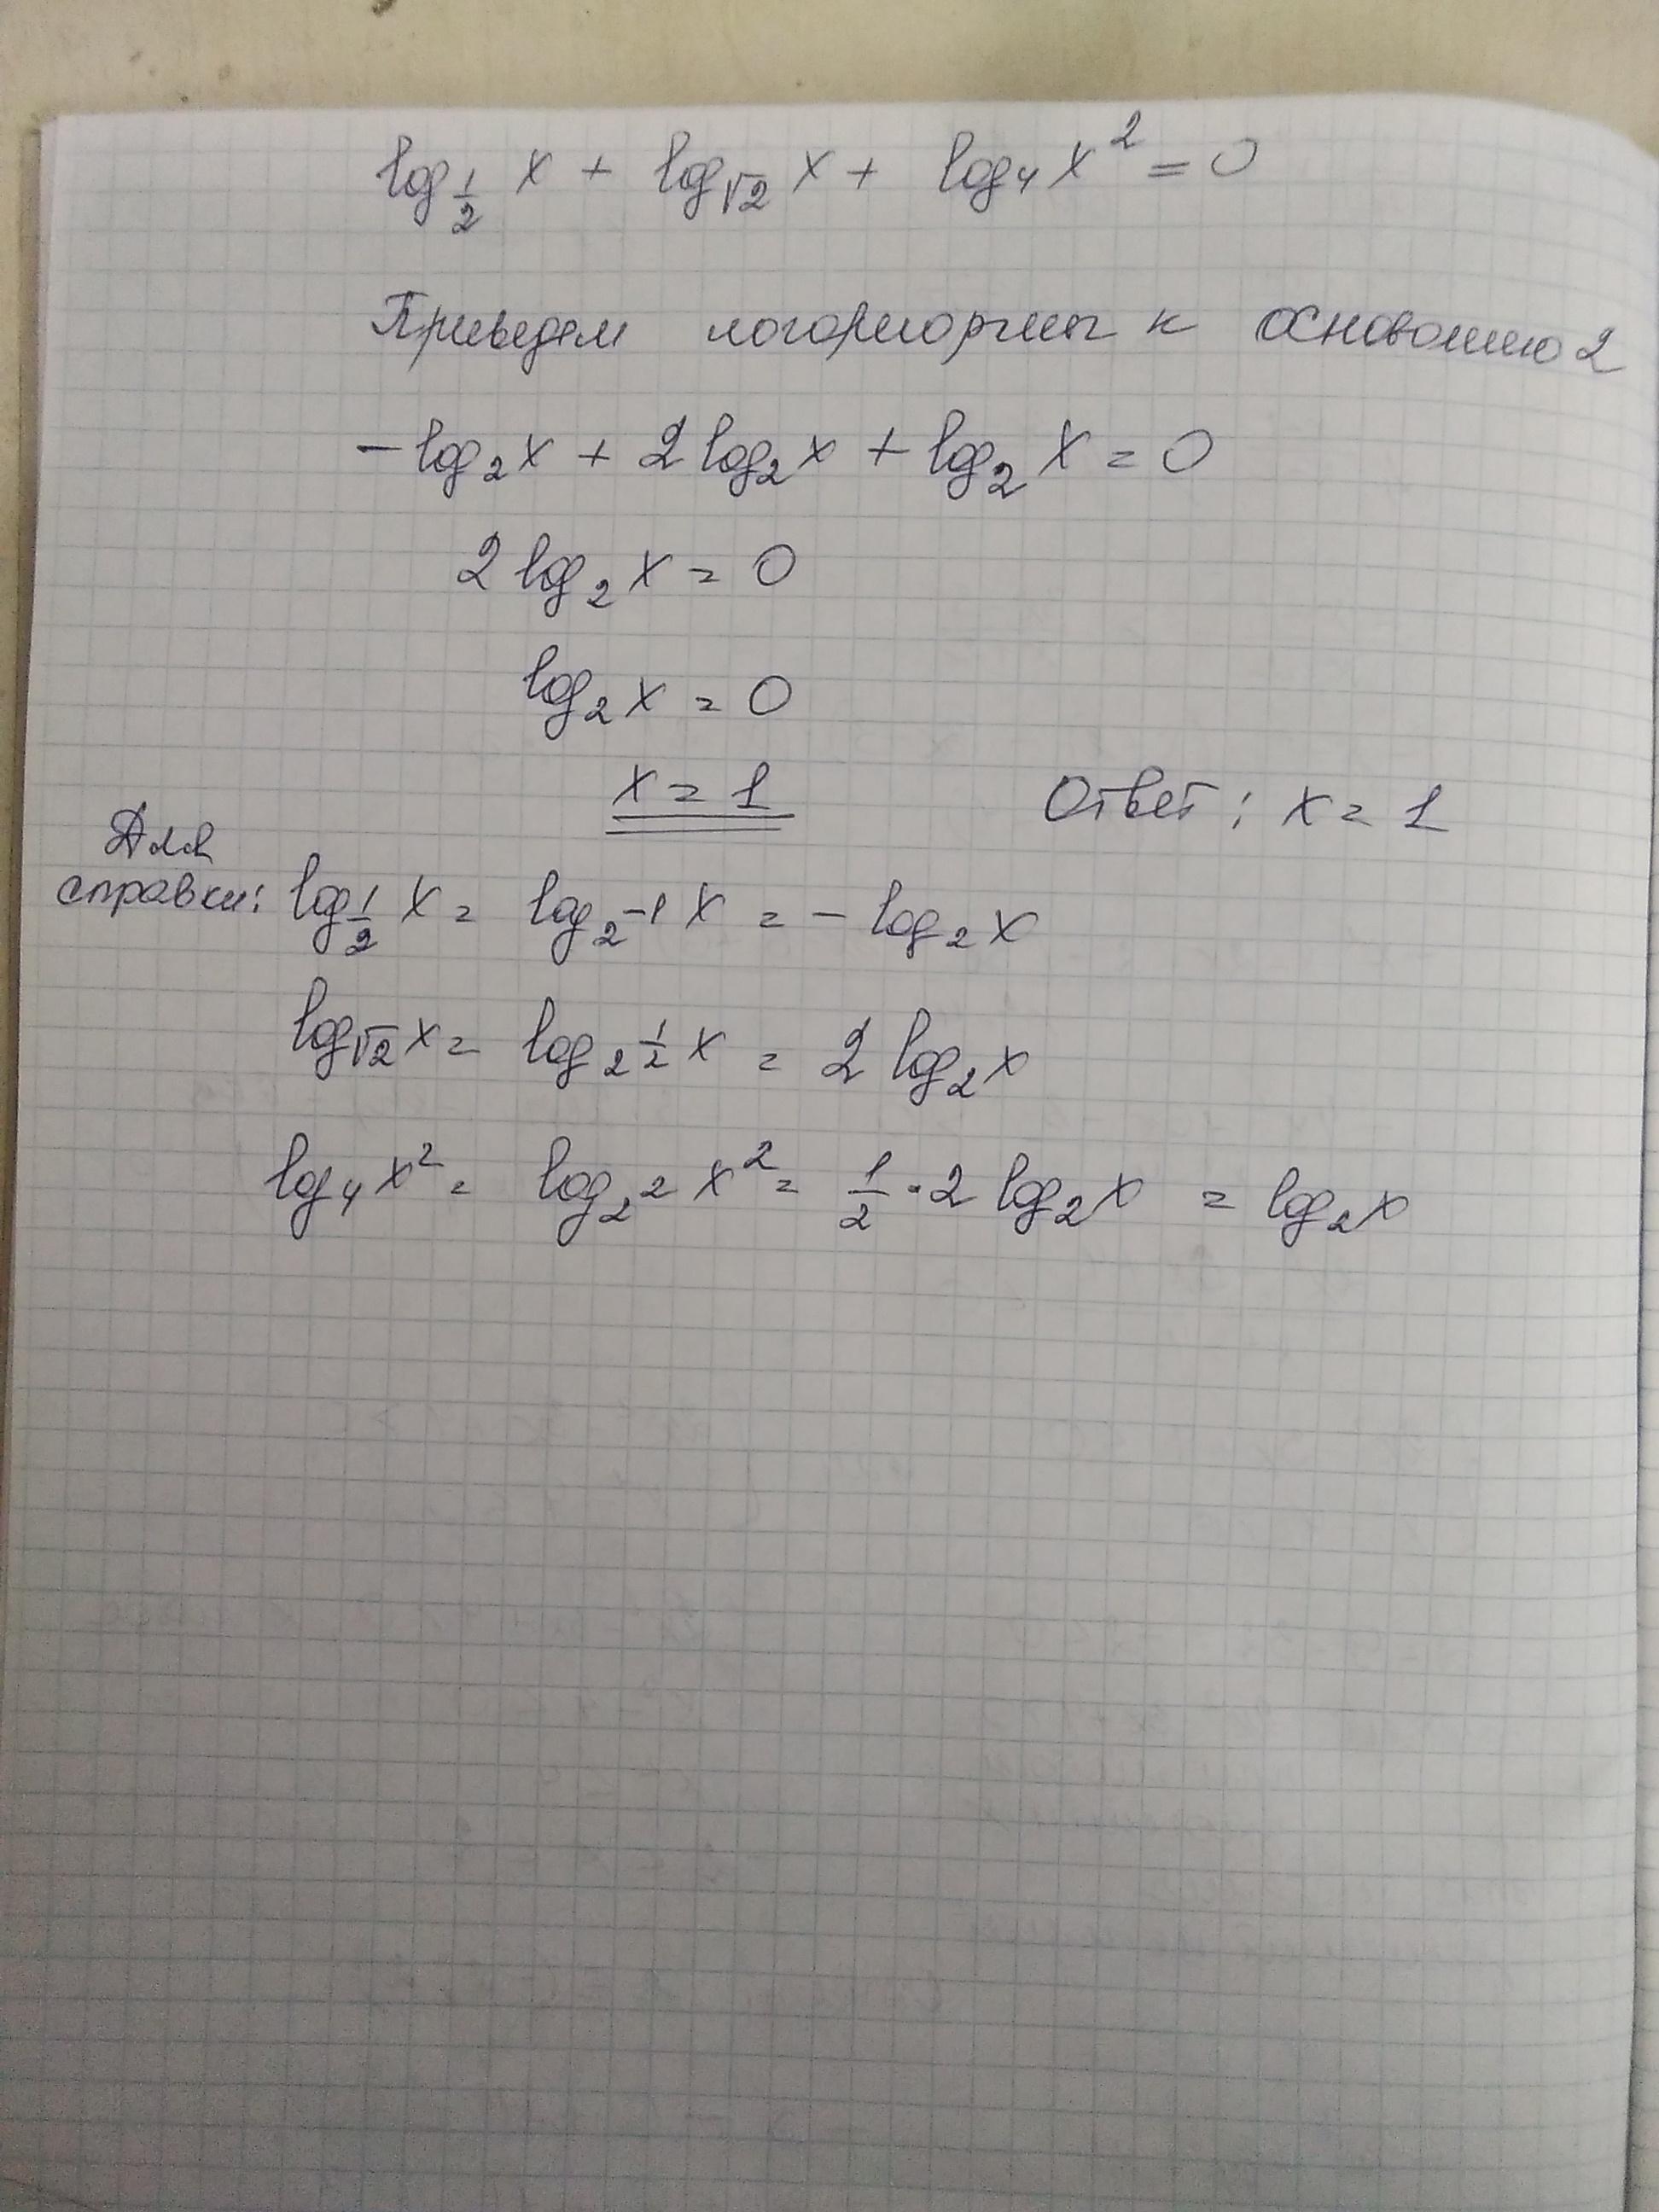 log_{1/2} x + log_{√2} x + log_4 x² = 0
Приведем логарифмы к основанию 2
- log_2 x + 2 log_2 x + log_2 x = 0
2 log_2 x = 0
log_2 x = 0
x = 1 Ответ: x = 1
Для
справки: log_{1/2} x = log_{2^{-1}} x = - log_2 x
log_{√2} x = log_{2^{1/2}} x = 2 log_2 x
log_4 x² = log_{2^2} x² = 1/2 · 2 log_2 x = log_2 x